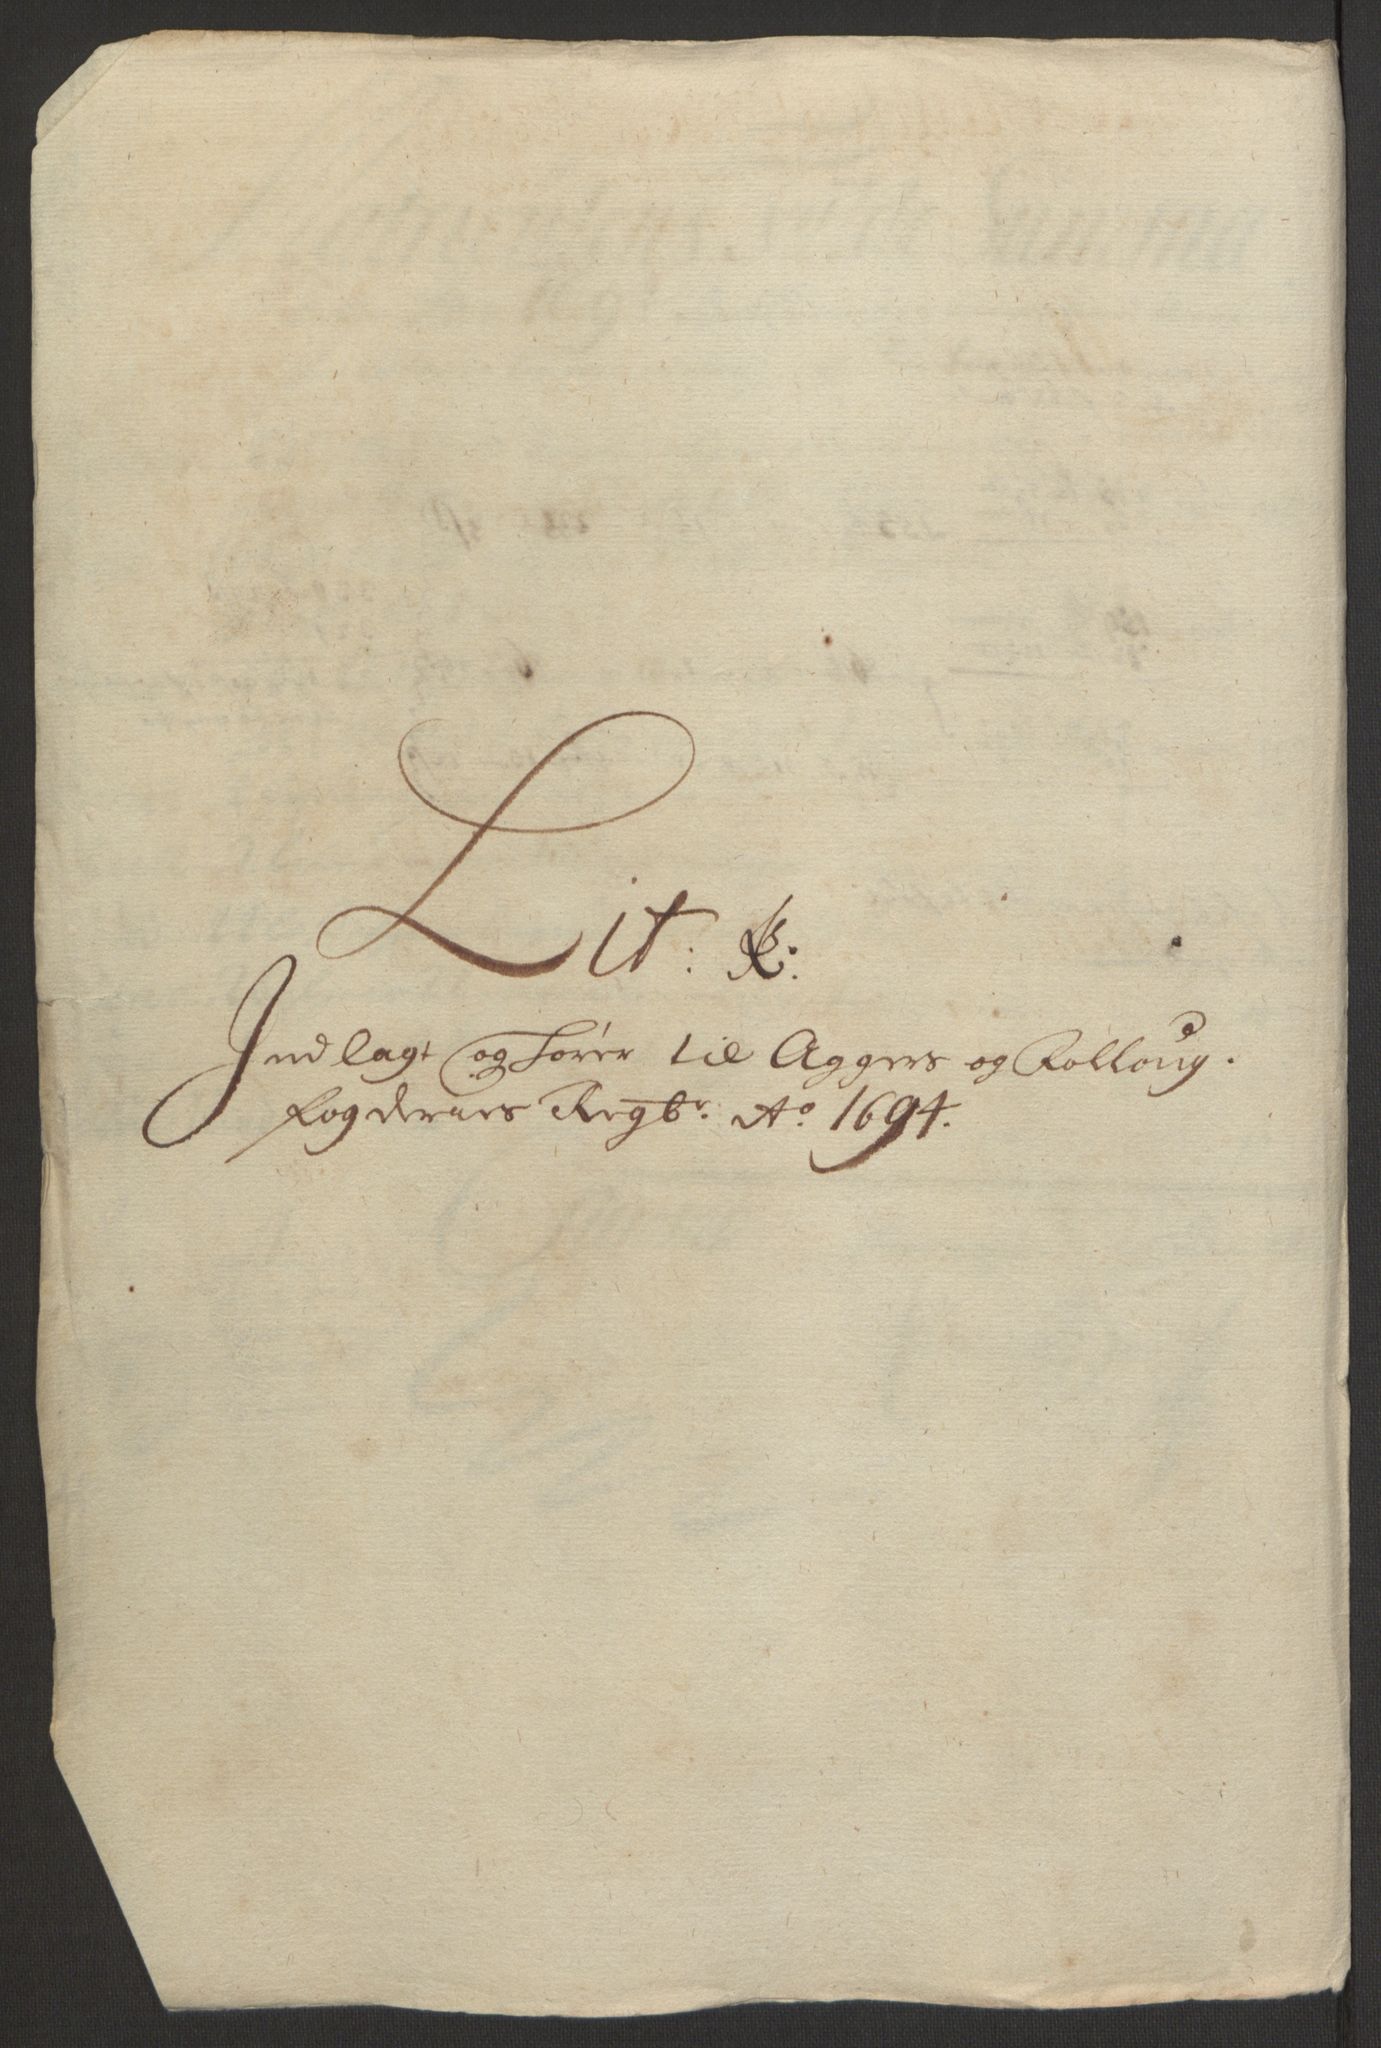 Lit: K:
Indlagt og hører til Aggers og Folloug.
fogderies Regb. Ao. 1694.